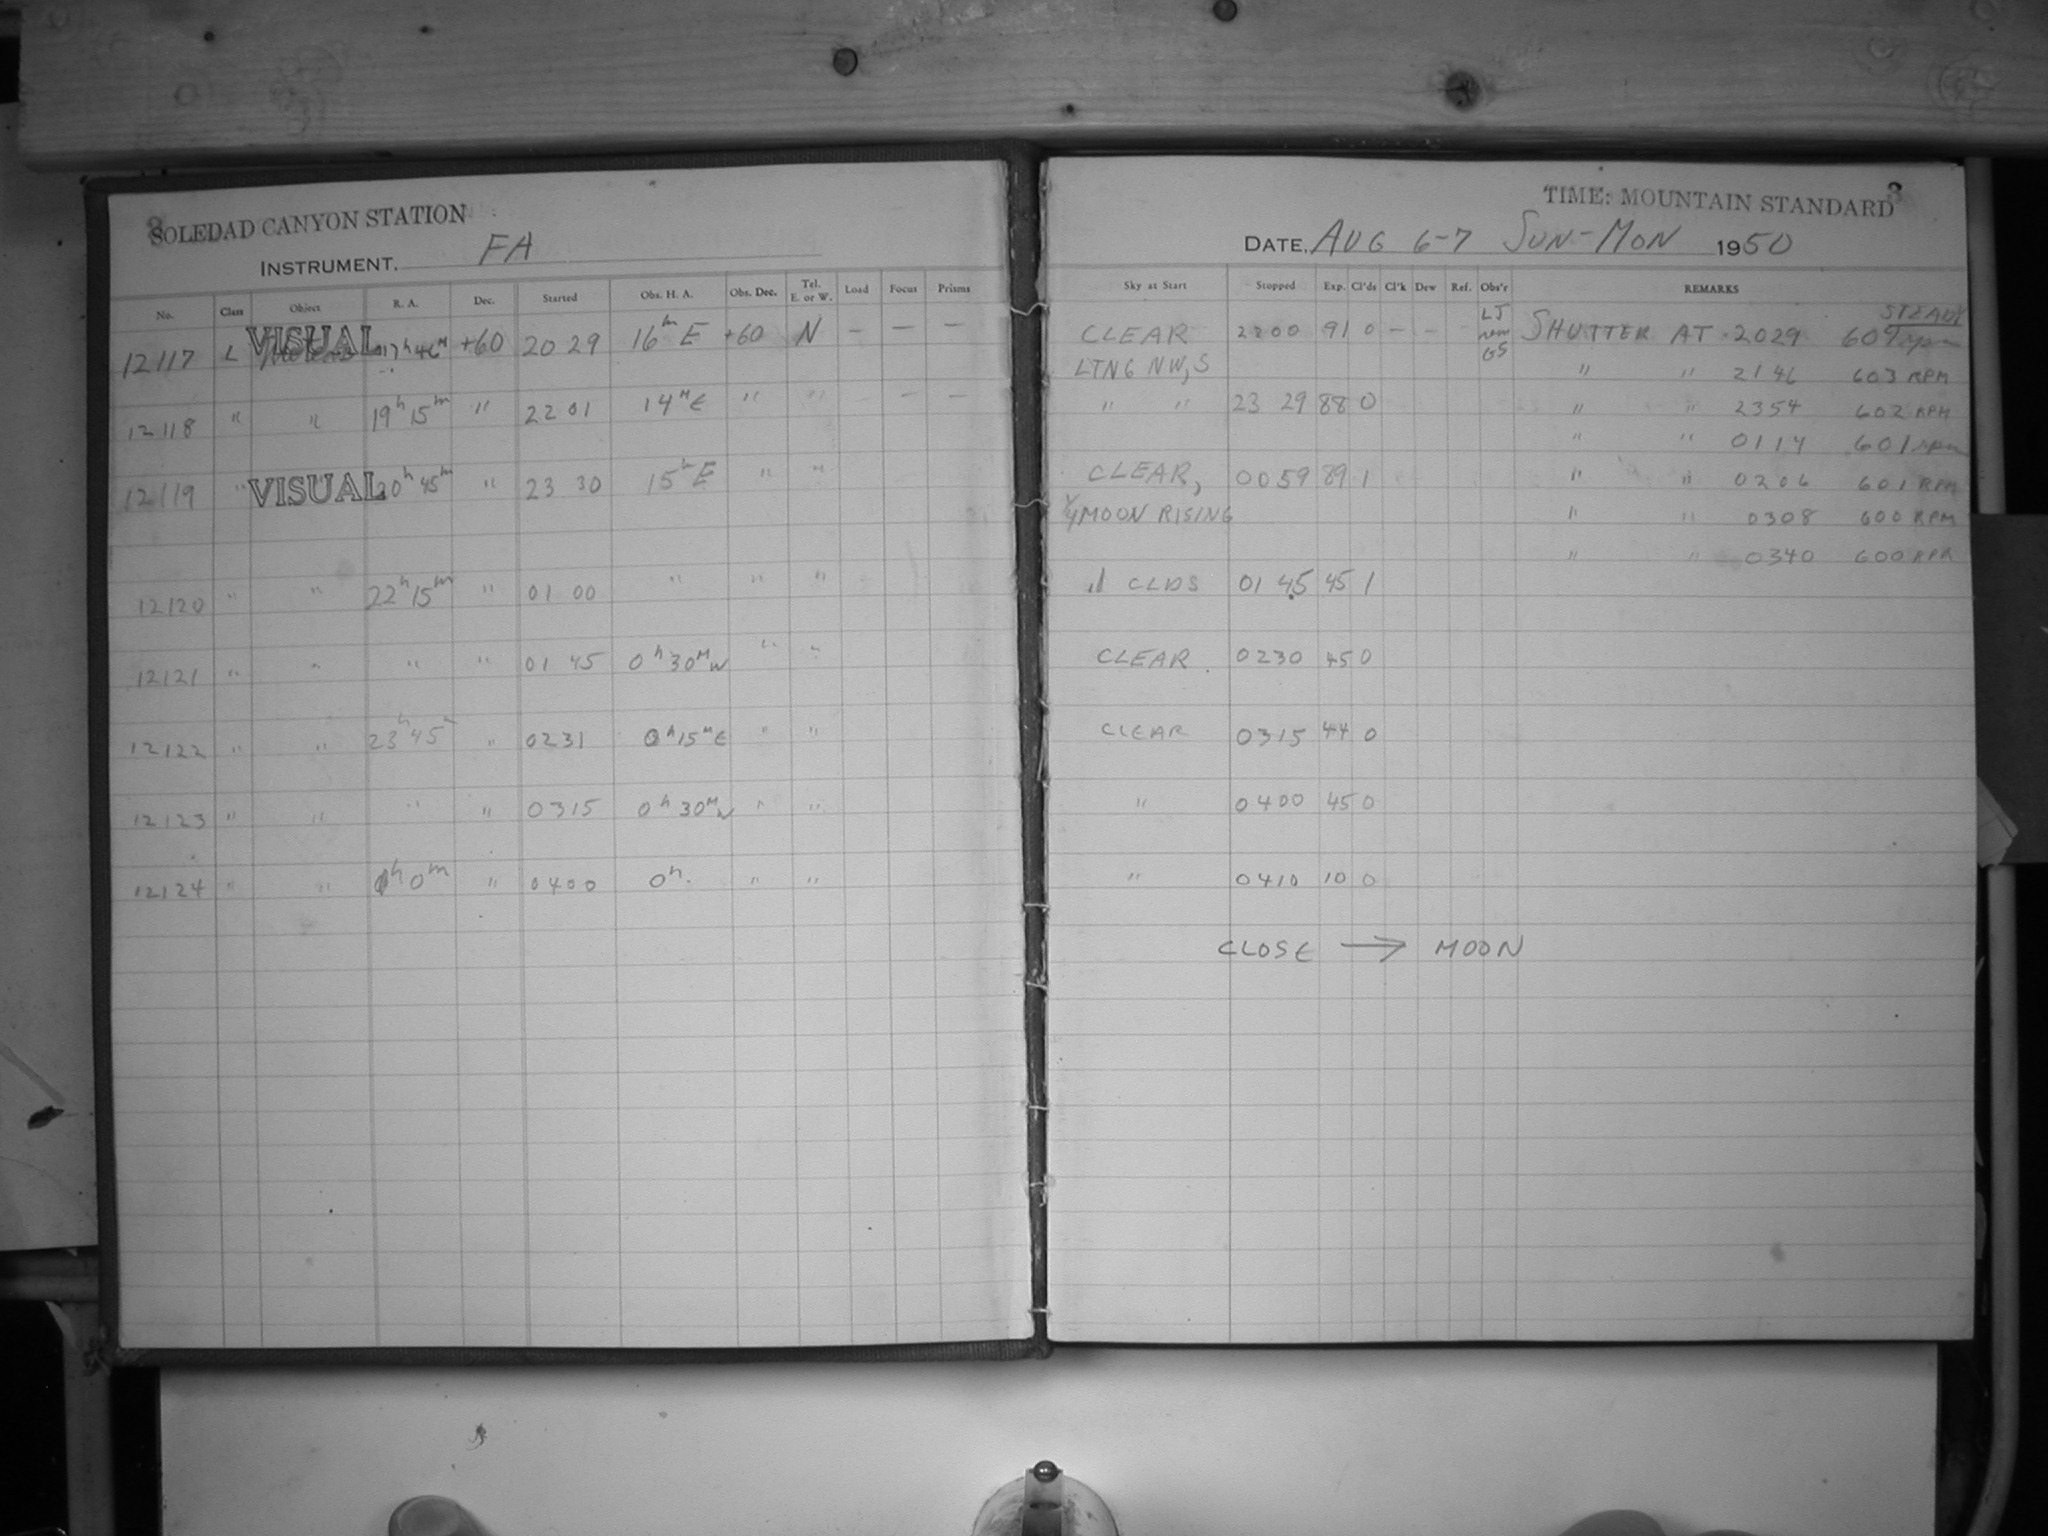 SOLEDAD CANYON STATION
INSTRUMENT. FA
No. Class Object R. A. Dec. Started Obs. H. A. Obs. Dec. Tel. E. or W. Load Focus Prisms
12117 L VISUAL 17h 46M +60 20 29 16m E +60 N - - -
12118 " " 19h 15m " 22 01 14M E " " - -
12119 " VISUAL 20h 45m " 23 30 15m E " "
12120 " " 22h 15m " 01 00 " " "
12121 " " " " 01 45 0h 30M W " "
12122 " " 23h 45 " 0231 0h 15M E " "
12123 " " " " 0315 0h 30M W " "
12124 " " 0h 0m " 0400 0h. " "
3
TIME: MOUNTAIN STANDARD
DATE. AUG 6-7 SUN-MON 1950
Sky at Start Stopped Exp. Cl'ds Cl'k Dew Ref. Obs'r REMARKS
STEADY
CLEAR 2200 91 0 - - LJ GS SHUTTER AT 2029
LTNG NW, S " " 2146 603 RPM
" " 23 29 88 0 " " 2354 602 RPM
" " 0114 601 rpm
CLEAR, 0059 89 1 " " 0206 601 RPM
1/4 MOON RISING " " 0308 600 RPM
" " 0340 600 RPM
CLDS 01 45 45 1
CLEAR 0230 45 0
CLEAR 0315 44 0
" 0400 45 0
" 0410 10 0
CLOSE → MOON